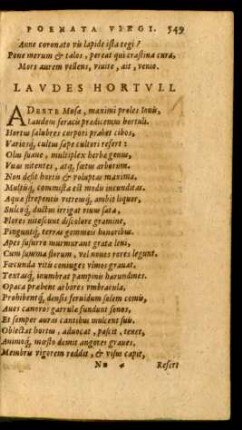 POEMATA VIRGI. 549
Anne coronato vis lapide ista tegi?
Pone merum & talos, pereat qui crastina curat,
Mors aurem vellens, viuite, ait, venio.
LAVDES HORTVLI.
ADESTE Musæ, maximi proles Iouis,
Laudem feracis prædicemus hortuli.
Hortus salubres corpori præbet cibos,
Variosq́; cultus sæpe cultori refert:
Olus suaue, multiplex herbæ genus,
Vuas nitentes, atq́; fœtus arborum.
Non desit hortis & voluptas maxima,
Multisq́; commista est modis iucunditas.
Aquæ strepentis vitreusq́; ambit liquor,
Sulcoq́; ductus irrigat riuus sata,
Flores nitescunt discolore gramine,
Pinguntq́; terras gemmeis honoribus.
Apes susurro murmurant gratæ leni,
Cum summa florum, vel nouos rores legunt.
Fœcunda vitis coniuges vlmos grauat,
Textasq́; inumbrat pampinis harundines.
Opaca præbent arbores vmbracula,
Prohibentq́; densis feruidum solem comis,
Aues canoros garrulæ fundunt sonos,
Et semper aures cantibus mulcent suis.
Oblectat hortus, aduocat, pascit, tenet,
Animoq́; mœsto demit angores graues.
Membris vigorem reddit, & visus capit,
Nn Refert